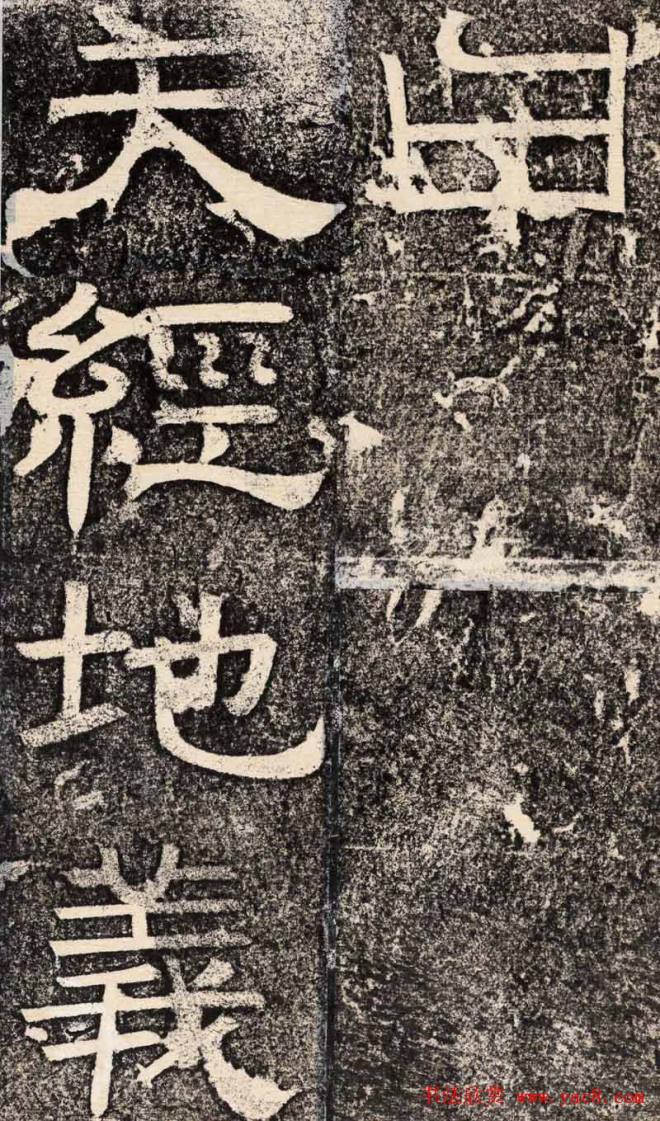 天經地義
书法欣赏 www.yac8.com